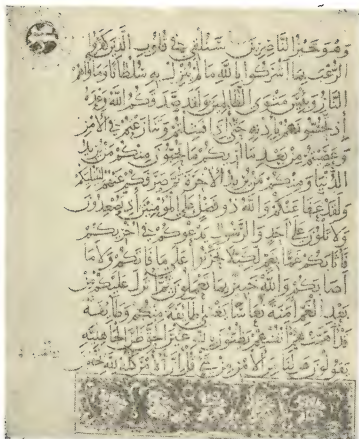 وهو خير الناصرين سنلقي في قلوب الذين كفروا
الرعب بما أشركوا بالله ما لم ينزل به سلطانا ومأواهم
النار وبئس مثوى الظالمين ولقد صدقكم الله وعده
إذ تحسونهم بإذنه حتى إذا فشلتم وتنازعتم في الأمر
وعصيتم من بعد ما أراكم ما تحبون منكم من يريد
الدنيا ومنكم من يريد الآخرة ثم صرفكم عنهم ليبتليكم
ولقد عفا عنكم والله ذو فضل على المؤمنين إذ تصعدون
ولا تلوون على أحد والرسول يدعوكم في أخراكم
فأثابكم غما بغم لكيلا تحزنوا على ما فاتكم ولا ما
أصابكم والله خبير بما تعملون ثم أنزل عليكم من
بعد الغم أمنة نعاسا يغشى طائفة منكم وطائفة
قد أهمتهم أنفسهم يظنون بالله غير الحق ظن الجاهلية
يقولون هل لنا من الأمر من شيء قل إن الأمر كله لله